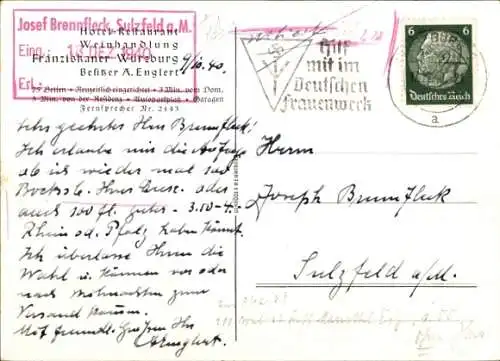 Josef Brennfleck, Sulzfeld a. M.
Eing.: 10. DEZ. 1940
Erl.:
Hotel-Restaurant
Weinhandlung
Franziskaner Würzburg
Besitzer A. Englert
75 Betten • Neuzeitlich eingerichtet • 3 Min. vom Dom,
5 Min. von der Residenz • Autoparkplatz • Garagen
Fernsprecher Nr. 2443
9/10.40.
Hilf
mit im
Deutschen
Frauenwerk
6 6
Deutsches Reich
a
Sehr geehrter Herr Brennfleck!
Ich erlaube mir die Anfrage
ob ich wieder mal 100
Bocksb. Ihres oder
auch 100 fl. zu 3.50-4.
Rhein od. Pfalz haben könnt.
Ich überlasse Ihnen die
Wahl u. können vor oder
nach Weihnachten zum
Versand kommen.
Mit freundl. Grüßen Ihr
A Englert.
Herrn
Joseph Brennfleck
Sulzfeld a/M.